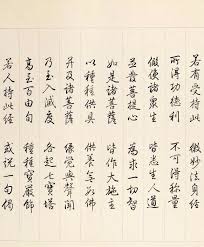 若有受持此　微妙法身經
所得功德利　不可得稱量
假使諸眾生　皆悉生人道
並發菩提心　為求一切智
如是諸菩薩　皆作大施主
以種種供具　供養無數佛
并及諸菩薩　緣覺與聲聞
入滅度　各起七寶塔
高至百由旬　種種寶嚴飾
若人持此經　或說一句偈